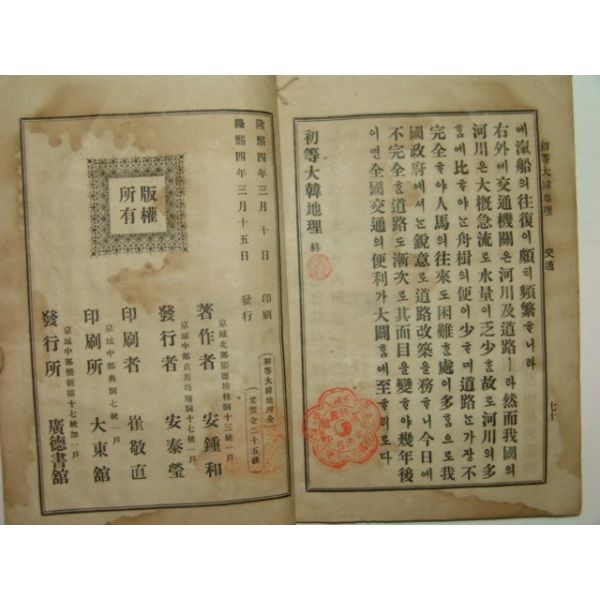 初等大韓地理 交通
七十
에滊船의往復이頗히頻繁ᄒᆞ니라
右外에交通機關은河川及道路ㅣ라然而我國의
河川은大概急流로水量이乏少ᄒᆞᆫ故로河川의多
ᄒᆞᆷ에比ᄒᆞ야ᄂᆞᆫ舟楫의便이少ᄒᆞ며道路ᄂᆞᆫ가장不
完全ᄒᆞ야人馬의往來도困難ᄒᆞᆫ處이多ᄒᆞᆷ으로我
國政府에서ᄂᆞᆫ銳意로道路改築을務ᄒᆞ니今日에
不完全ᄒᆞᆫ道路도漸次로其面目을變ᄒᆞ야幾年後
이면全國交通의便利가大闢ᄒᆞᆷ에至ᄒᆞ리로다
初等大韓地理 終
隆熙四年三月十日 印刷
隆熙四年三月十五日 發行
版權
所有
初等大韓地理全
定價金二十五錢
京城北部陽德坊桂洞十三統一戶
著作者 安鍾和
京城中部貞善坊廟洞十七統一戶
發行者 安泰瑩
印刷者 崔敬直
京城中部典洞七統一戶
印刷所 大東舘
發行所 廣德書舘